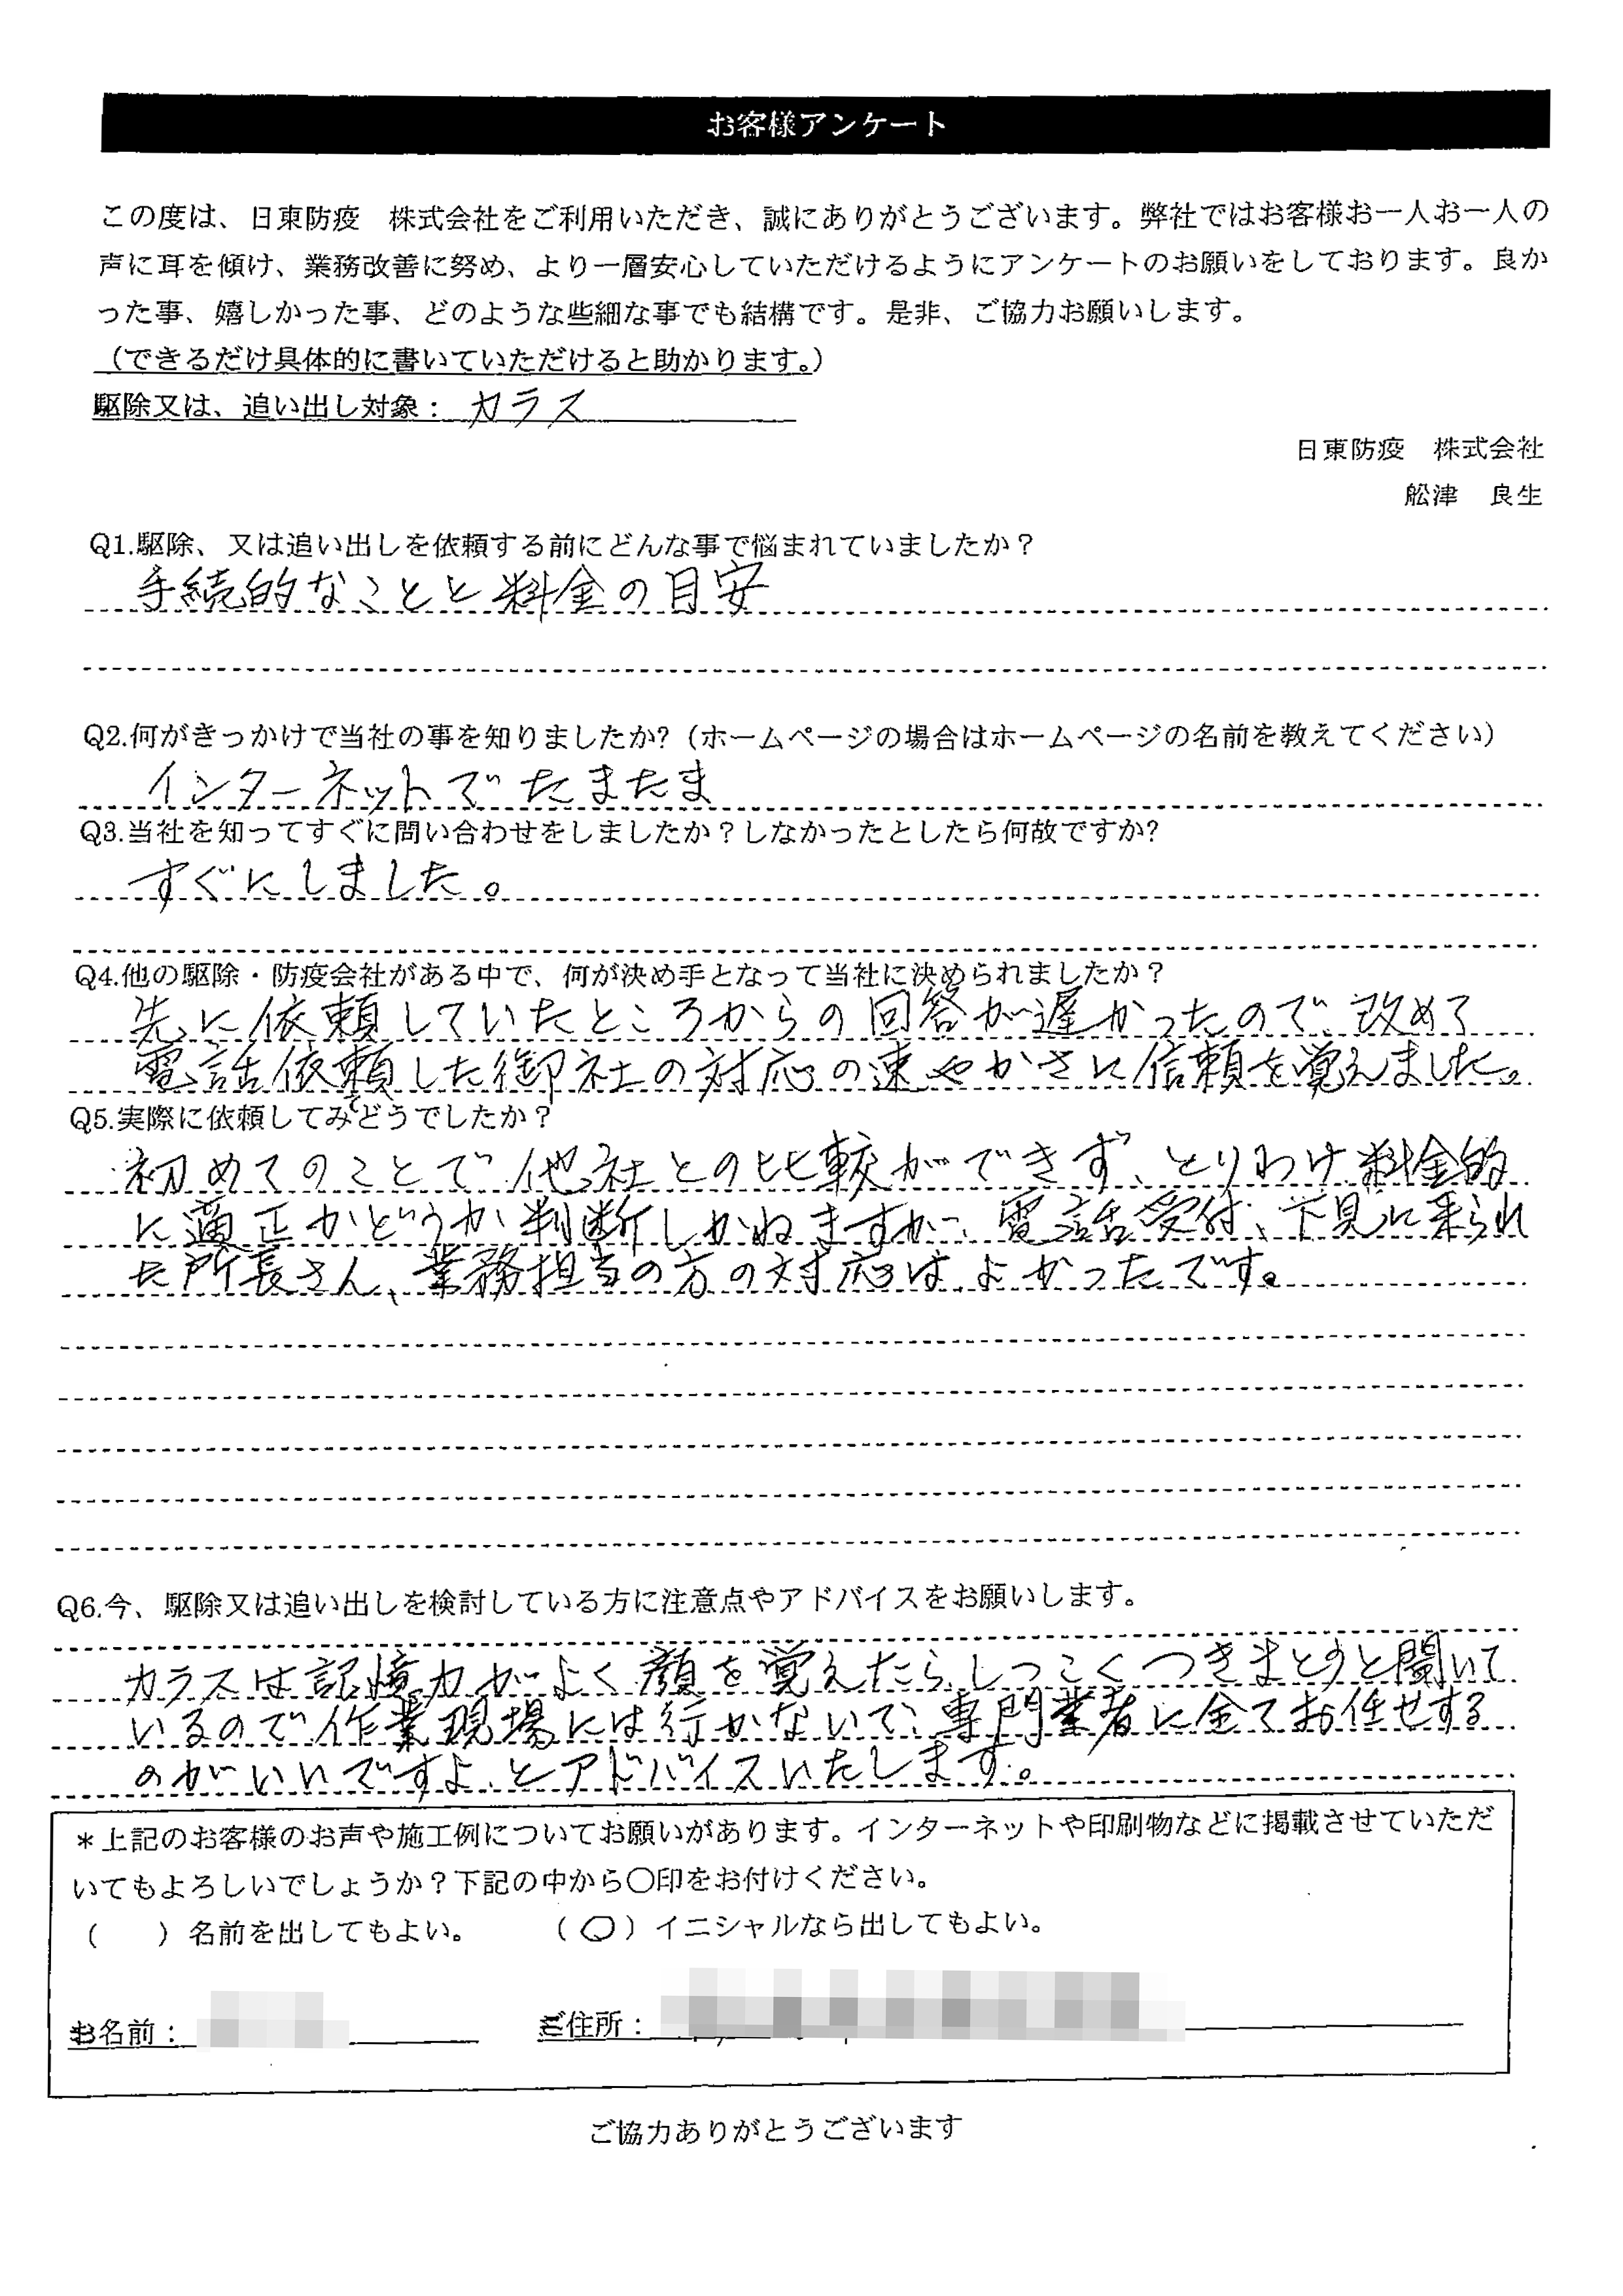 お客様アンケート
この度は、日東防疫　株式会社をご利用いただき、誠にありがとうございます。弊社ではお客様お一人お一人の
声に耳を傾け、業務改善に努め、より一層安心していただけるようにアンケートのお願いをしております。良か
った事、嬉しかった事、どのような些細な事でも結構です。是非、ご協力お願いします。
（できるだけ具体的に書いていただけると助かります。）
駆除又は、追い出し対象：カラス
日東防疫　株式会社
舩津　良生
Q1.駆除、又は追い出しを依頼する前にどんな事で悩まれていましたか？
手続的なことと料金の目安
Q2.何がきっかけで当社の事を知りましたか?（ホームページの場合はホームページの名前を教えてください）
インターネットでたまたま
Q3.当社を知ってすぐに問い合わせをしましたか？しなかったとしたら何故ですか?
すぐにしました。
Q4.他の駆除・防疫会社がある中で、何が決め手となって当社に決められましたか？
先に依頼していたところからの回答が遅かったので、改めて
電話依頼した御社の対応の速やかさに信頼を覚えました。
Q5.実際に依頼してみてどうでしたか？
初めてのことで他社との比較ができず、とりわけ料金的
に適正かどうか判断しかねますが、電話受付、下見に来られ
た所長さん、業務担当の方の対応はよかったです。
Q6.今、駆除又は追い出しを検討している方に注意点やアドバイスをお願いします。
カラスは記憶力がよく顔を覚えたらしつこくつきまとうと聞いて
いるので作業現場には行かないで、専門業者に全てお任せする
のがいいですよ、とアドバイスいたします。
＊上記のお客様のお声や施工例についてお願いがあります。インターネットや印刷物などに掲載させていただ
いてもよろしいでしょうか？下記の中から〇印をお付けください。
（　　）名前を出してもよい。　　（〇）イニシャルなら出してもよい。
お名前：　　ご住所：
ご協力ありがとうございます